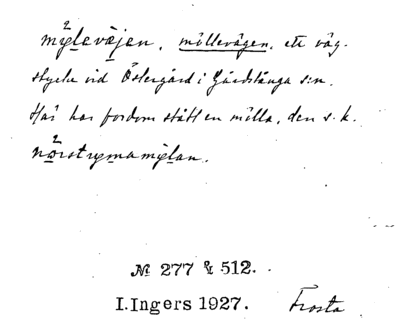 mylevæjen, möllevägen, ett väg-
stycke vid Östergård i Gårdstånga s:n.
Här har fordom stått en mölla, den s. k.
nörstrymamylan.
№ 277 & 512.
I. Ingers 1927. Frosta